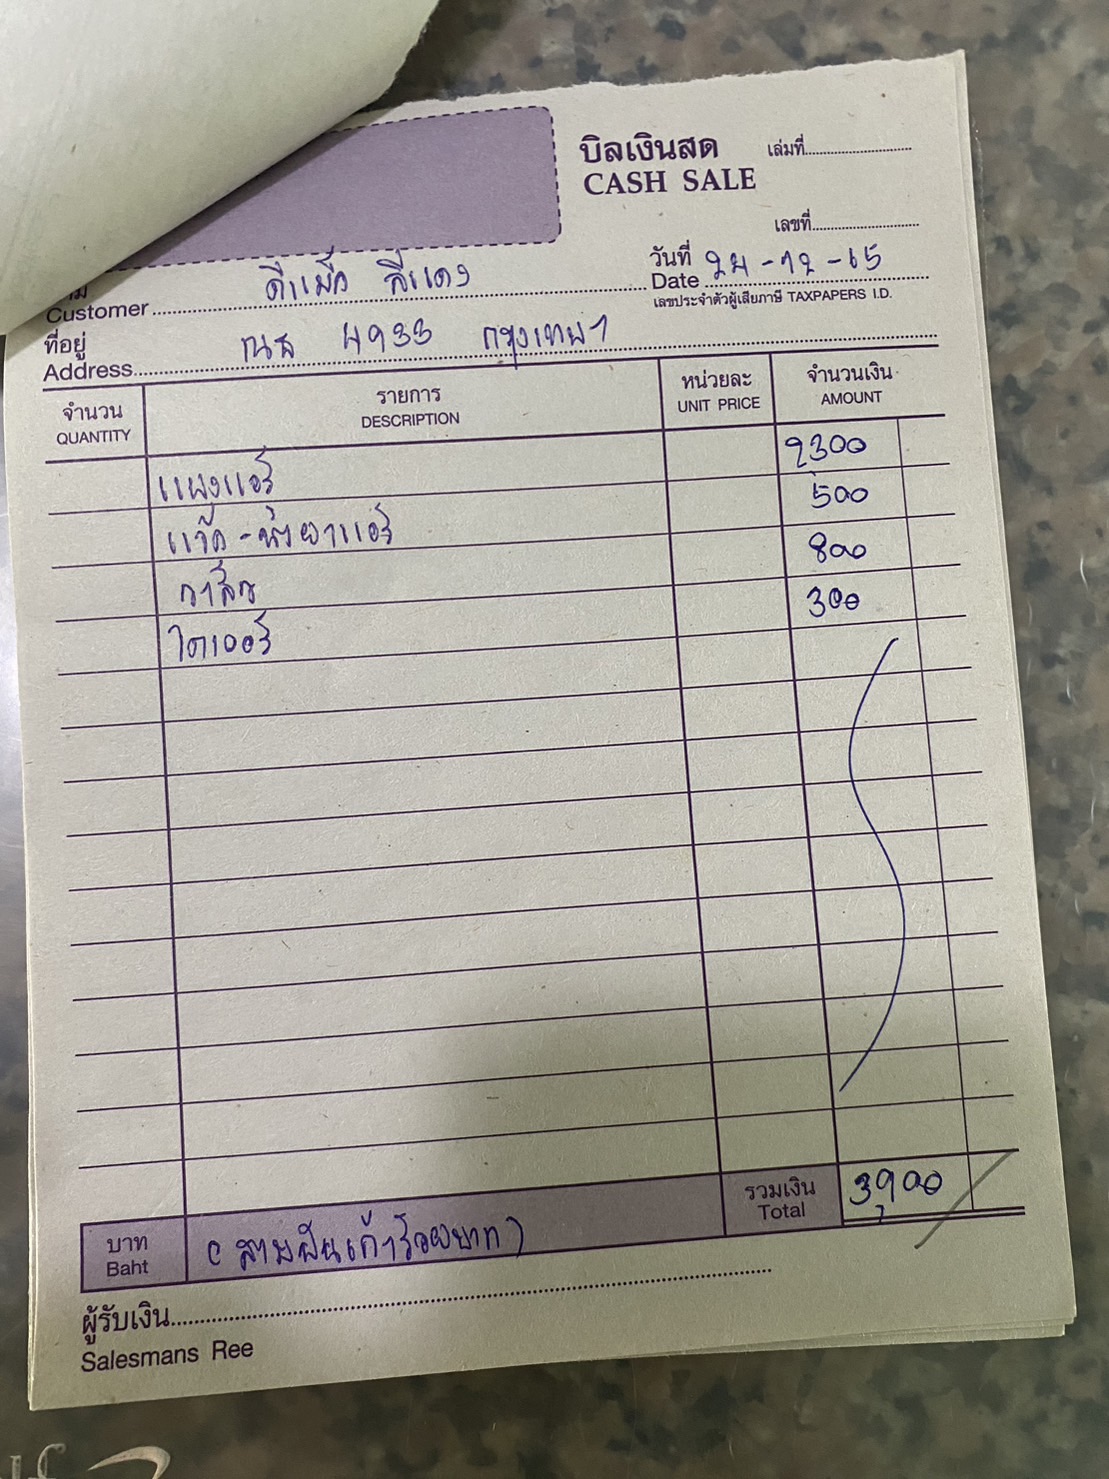 บิลเงินสด เล่มที่
CASH SALE
เลขที่
วันที่ 24-12-65
Date
เลขประจำตัวผู้เสียภาษี TAXPAPERS I.D.
Customer ดีแม็ก สีแดง
ที่อยู่
Address ณธ 4933 กรุงเทพฯ
จำนวน รายการ หน่วยละ จำนวนเงิน
QUANTITY DESCRIPTION UNIT PRICE AMOUNT
แผงแอร์ 2300
แว๊ค-น้ำยาแอร์ 500
วาล์ว 800
ไดเออร์ 300
รวมเงิน 3900
Total
บาท (สามพันเก้าร้อยบาท)
Baht
ผู้รับเงิน
Salesmans Ree